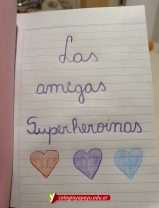 Las
amigas
Superheroínas
colegioyapeyu.edu.ar